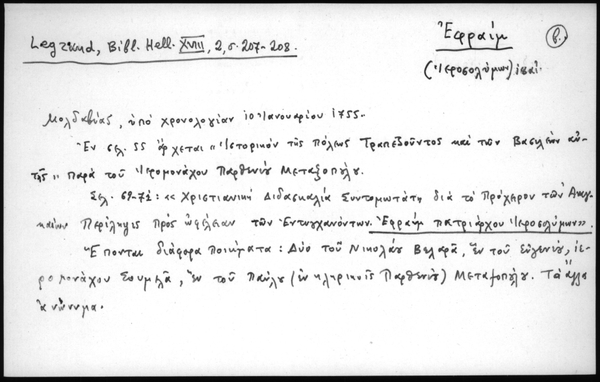 Legrand, Bibl. Hell. XVIII, 2, σ. 207-208.
Ἐφραὶμ
β.
(Ἱεροσολύμων)
Μολδαβίας, ὑπὸ χρονολογίαν 10 Ἰανουαρίου 1755.
Ἐν σελ. 55 ἄρχεται "Ἱστορικὸν τῆς πόλεως Τραπεζοῦντος καὶ τῶν Βασιλέων αὐ-
τῆς" παρὰ τοῦ Ἱερομονάχου Παρθενίου Μεταξοπούλου.
Σελ. 69-72: «Χριστιανικὴ Διδασκαλία Συντομωτάτη διὰ τὸ Πρόχειρον τῶν Ἀναγ-
καίων Περίληψις πρὸς ὠφέλειαν τῶν Ἐντυγχανόντων. Ἐφραὶμ πατριάρχου Ἱεροσολύμων».
Ἕπονται διάφορα ποιήματα: Δύο τοῦ Νικολάου Βελαρᾶ, ἓν τοῦ Εὐγενίου, ἱε-
ρομονάχου Σουμελᾶ, ἓν τοῦ Παύλου (ἐν κληρικοῖς Παρθενίου) Μεταξοπούλου. Τὰ ἄλλα
ἀνώνυμα.